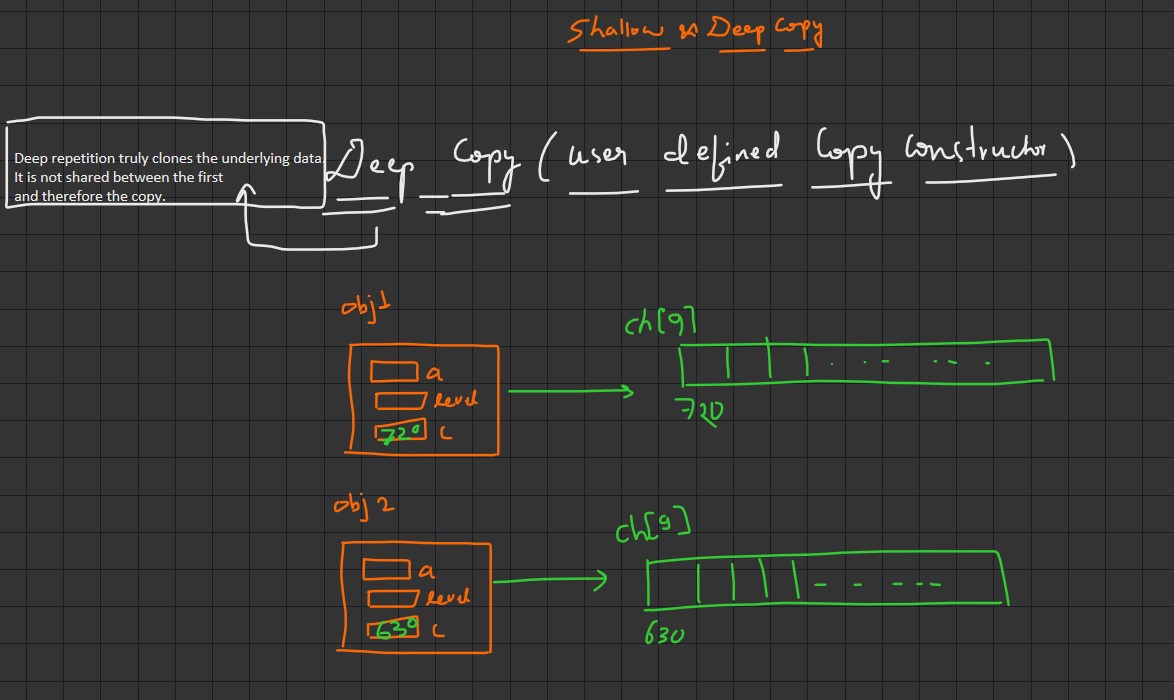 Shallow & Deep Copy
Deep repetition truly clones the underlying data.
It is not shared between the first
and therefore the copy.
Deep Copy (user defined Copy Constructor)
obj1
a
level
720 c
ch[9]
720
obj 2
a
level
630 c
ch[9]
630